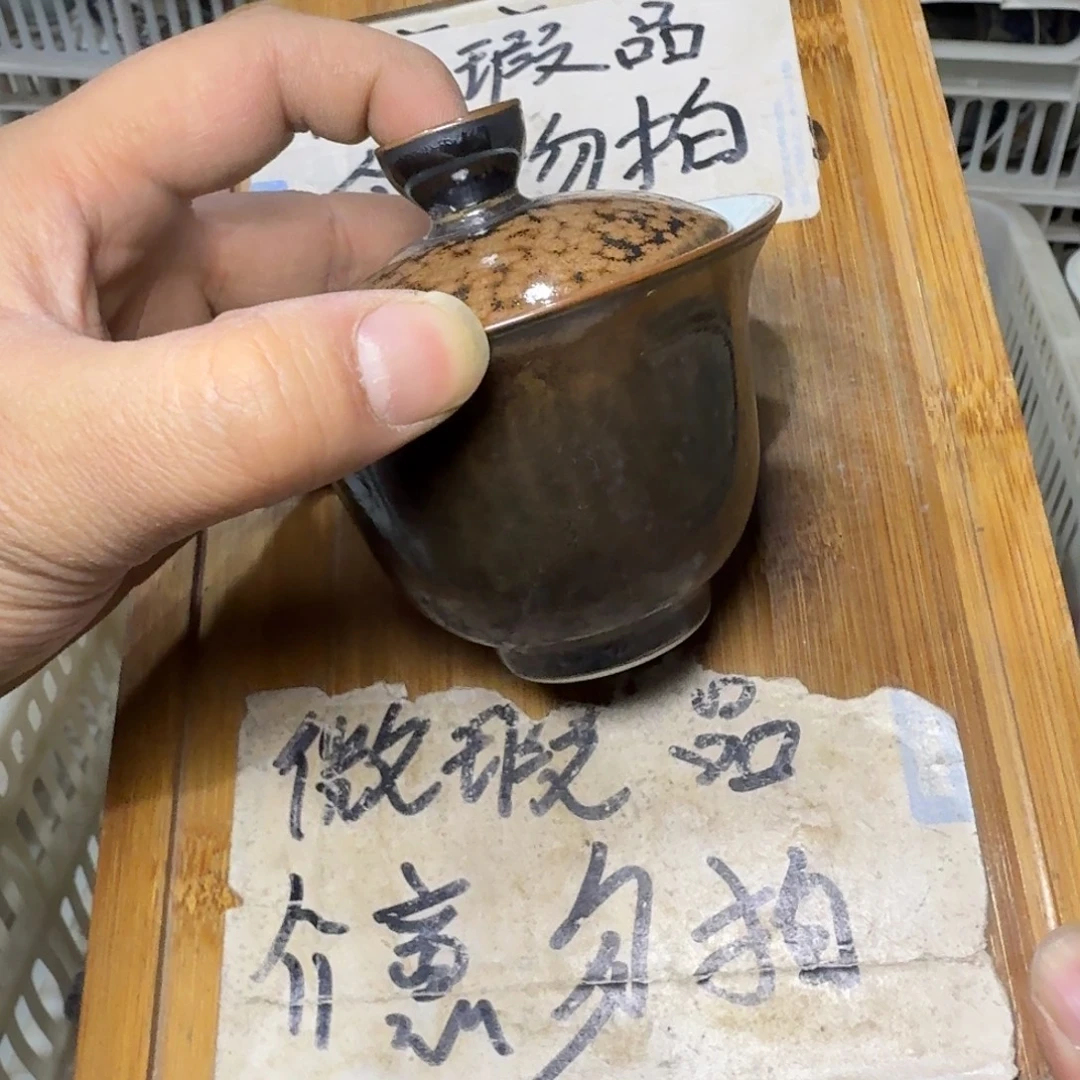 瑕品
勿拍
微瑕品
介意勿拍